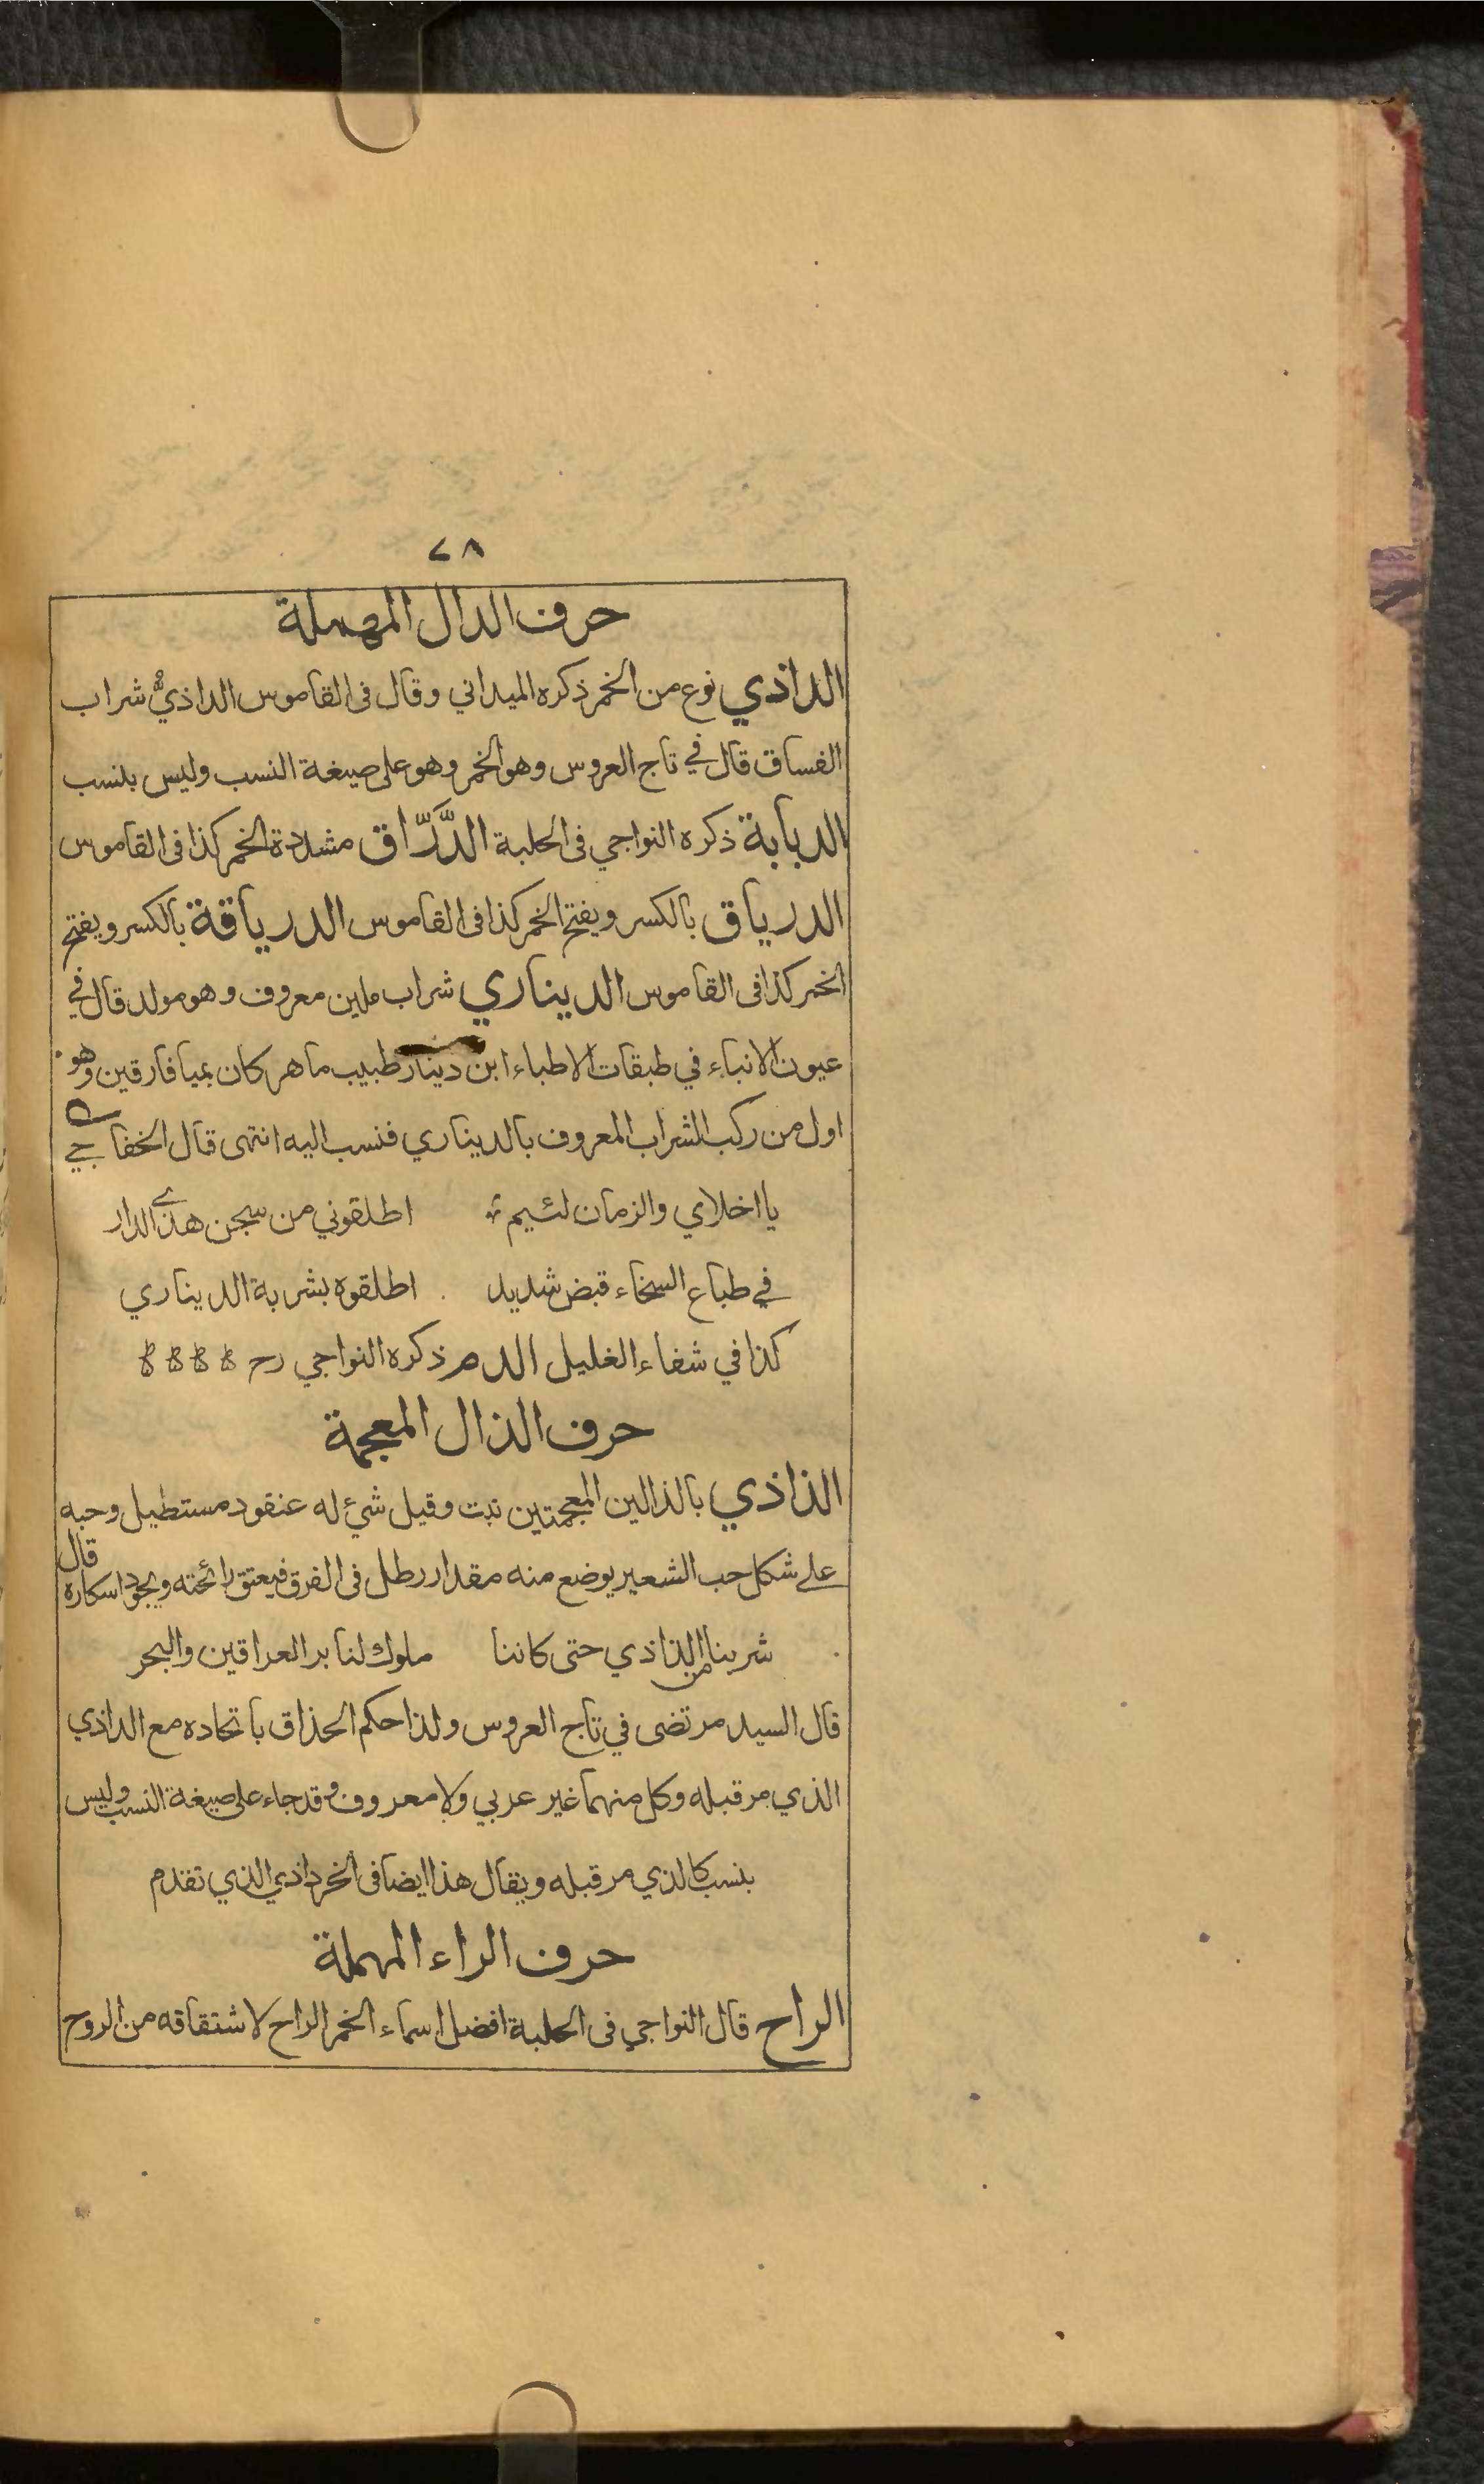 ٢٨
حرف الدال المهملة
الداذي نوع من الخمر ذكره الميداني وقال فى القاموس الداذيُّ شراب
الفساق قال في تاج العروس وهو الخمر وهو على صيغة النسب وليس بنسب
الدبابة ذكره النواجي فى الحلبة الدَّرَّاق مشددة الخمر كذا فى القاموس
الدرياق بالكسر ويفتح الخمر كذا فى القاموس الدرياقة بالكسر ويفتح
الخمر كذا فى القاموس الديناري شراب ملين معروف وهو مولد قال في
عيون الانباء في طبقات الاطباء ابن دينار طبيب ماهر كان بميافارقين وهو
اول من ركب الشراب المعروف بالديناري فنسب اليه انتهى قال الخفاجي
يا اخلاي والزمان لئيم اطلقوني من سجن هذى الدار
في طباع السخاء قبض شديد اطلقوه بشربة الديناري
كذا في شفاء الغليل الدم ذكره النواجي رح
حرف الذال المعجمة
الذاذي بالذالين المعجمتين نبت وقيل شيء له عنقود مستطيل وحبه
على شكل حب الشعير يوضع منه مقدار رطل فى الفرق فيعتق رائحته ويجود اسكاره قال
شربنا من الذاذي حتى كاننا ملوك لنا بر العراقين والبحر
قال السيد مرتضى في تاج العروس ولذا حكم الحذاق باتحاده مع الداذي
الذي مر قبله وكل منهما غير عربي ولا معروف وقد جاء على صيغة النسب وليس
بنسب كالذي مر قبله ويقال هذا ايضا فى الخرداذي الذي تقدم
حرف الراء المهملة
الراح قال النواجي فى الحلبة افضل اسماء الخمر الراح لاشتقاقه من الروح